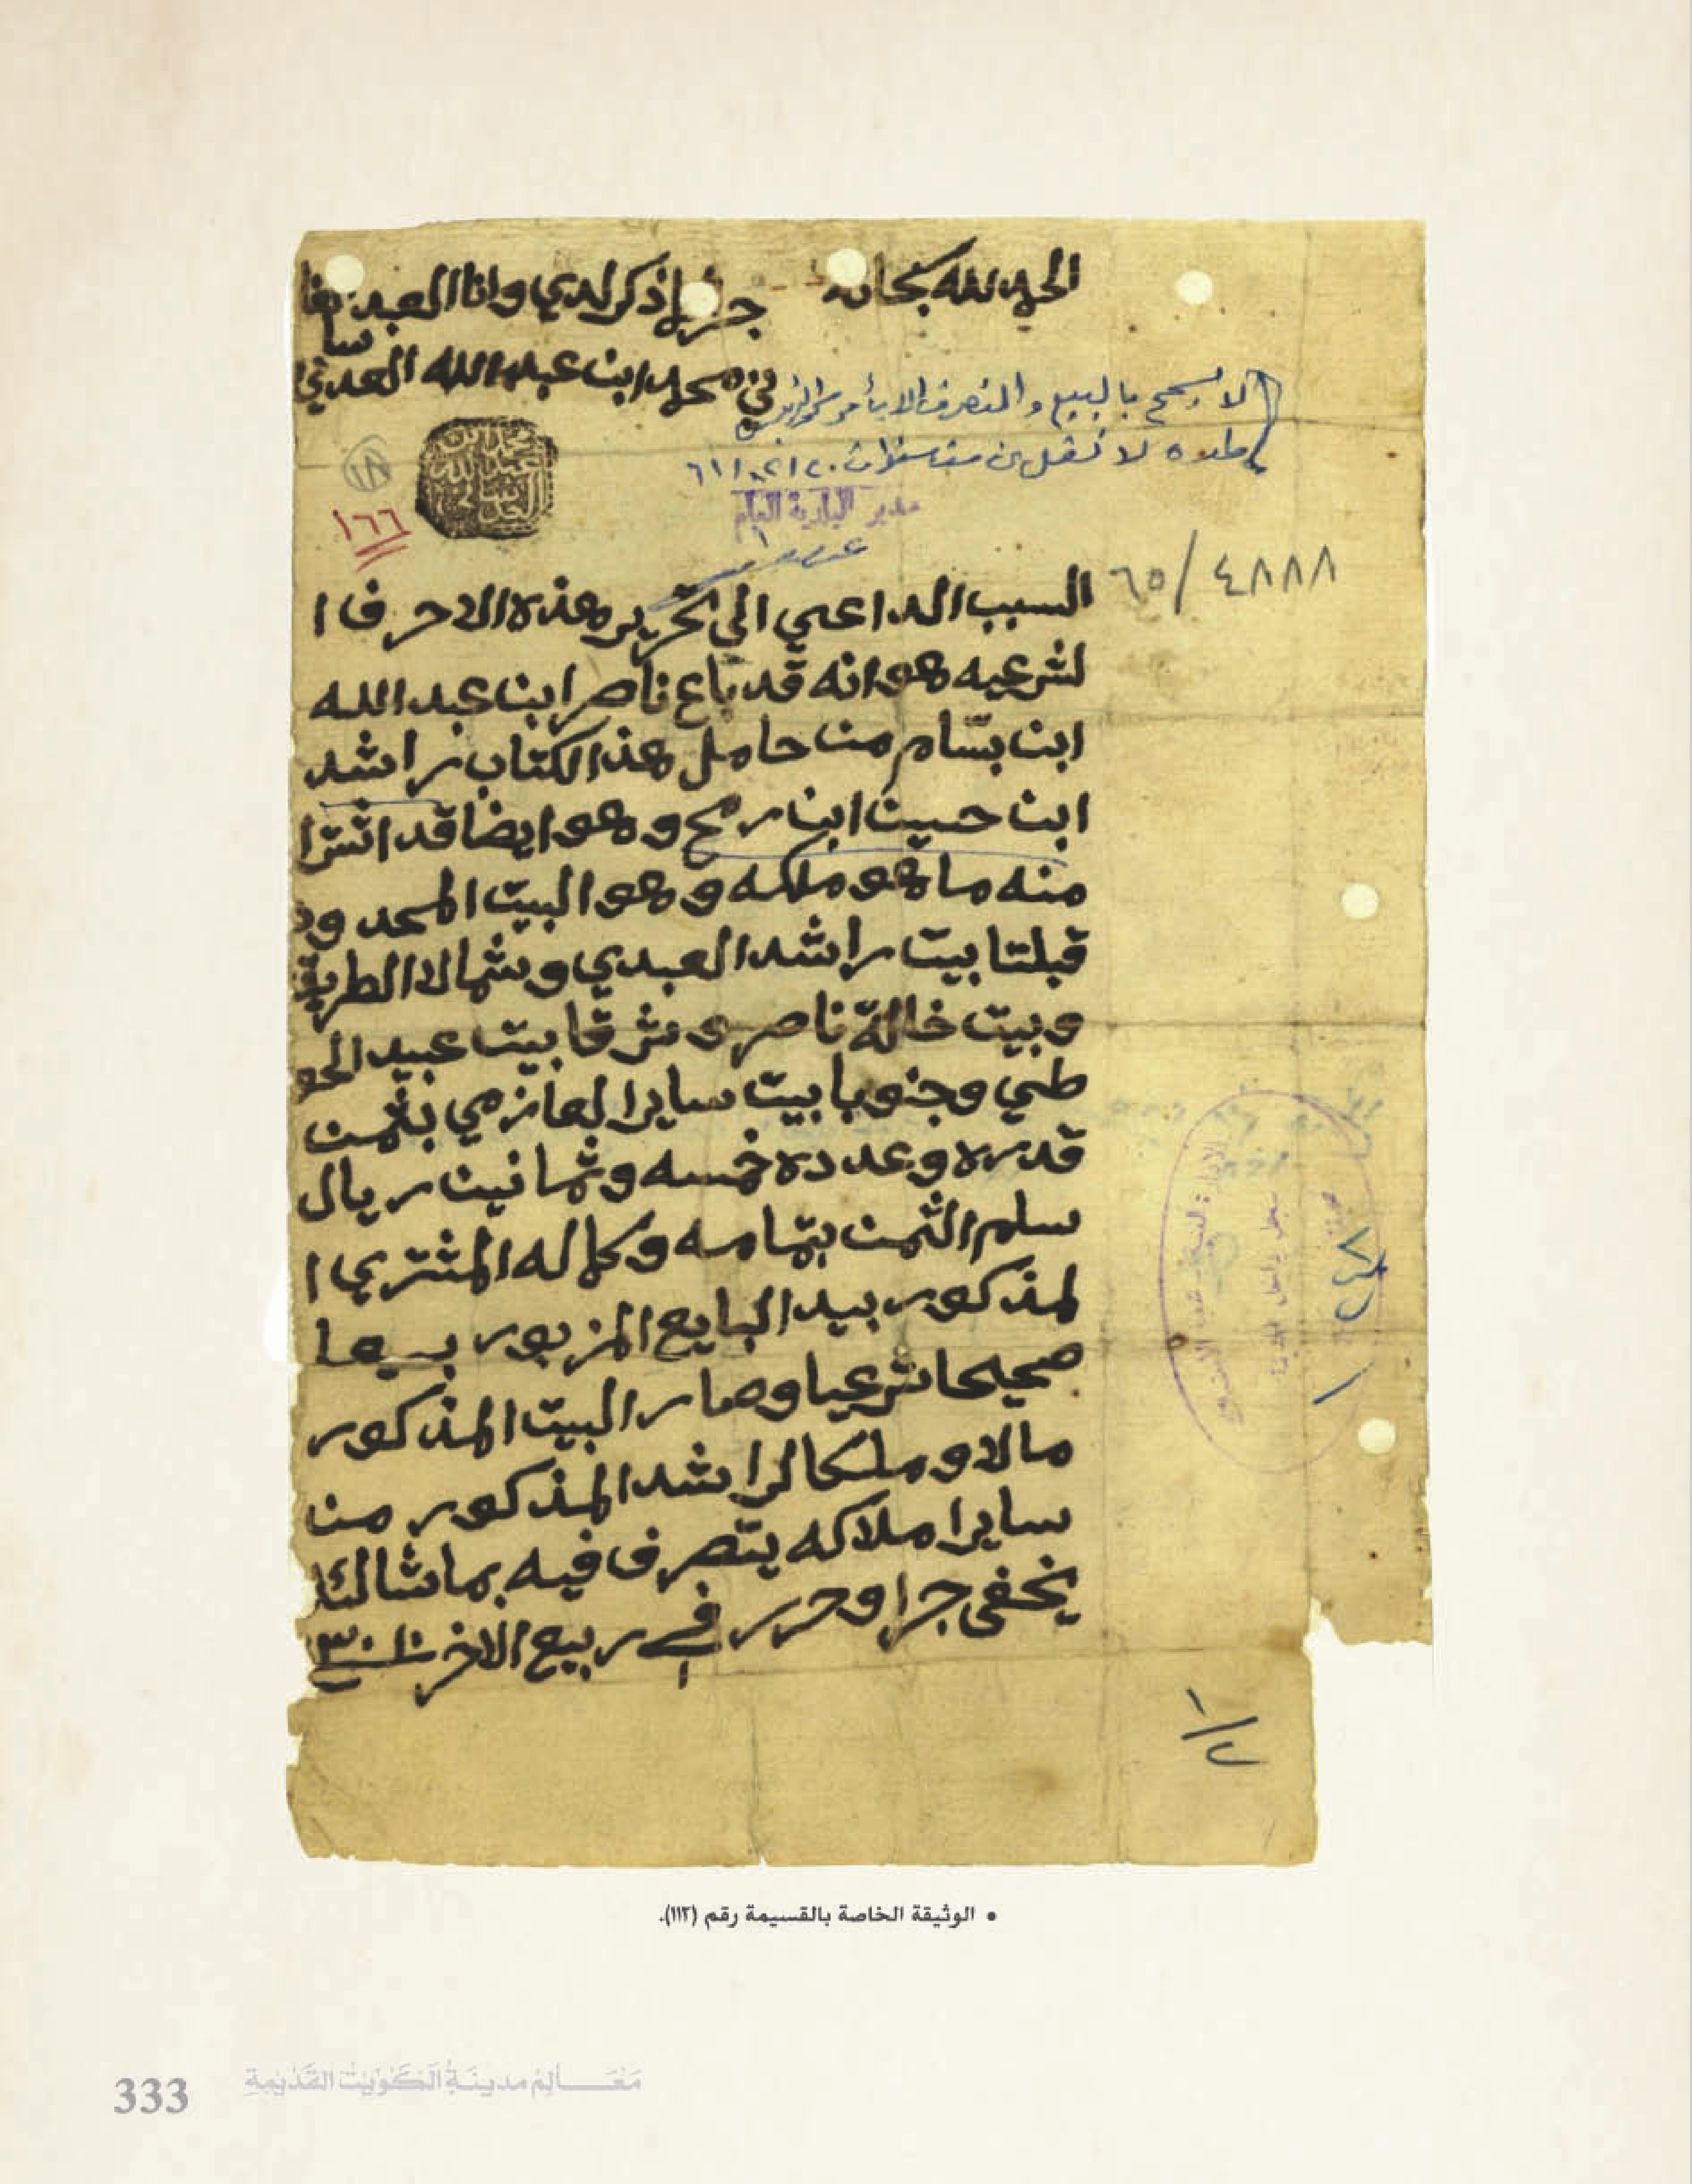 الحمد لله سبحانه
جرا ما ذكر لدي وانا العبد الفا
ني محمد ابن عبد الله العدساني
لا يسمح بالبيع والتصرف الا بأمر
لا تقل عن سنوات
مدير البلدية العام
١٨
١٦٦
٤٨٨٨/٦٥
السبب الداعي الى تحرير هذه الاحرف ا
لشرعيه هو انه قد باع ناصر ابن عبد الله
ابن بسّام من حامل هذا الكتاب راشد
ابن حسين ابن رمح وهو ايضا قد اشترا
منه ما هو ملكه وهو البيت المحدود
قبلتا بيت راشد العبدي وشمالا الطريق
وبيت خالة ناصر وشرقا بيت عبيد الحو
طي وجنوبا بيت ساير العازمي بثمن
قدره وعدده خمسه وثمانين ريال
سلم الثمن بتمامه وكماله المشتري ا
لمذكور بيد البايع المزبور بيعا
صحيحا شرعيا وصار البيت المذكور
مالا وملكا لراشد المذكور من
ساير املاكه يتصرف فيه بما شا لئلا
يخفى جرا وحرر في ربيع الاخر
١/٢
• الوثيقة الخاصة بالقسيمة رقم (١١٢).
333 مَعَالِمُ مدينَةِ الكُوَيْت القَدِيمَةِ